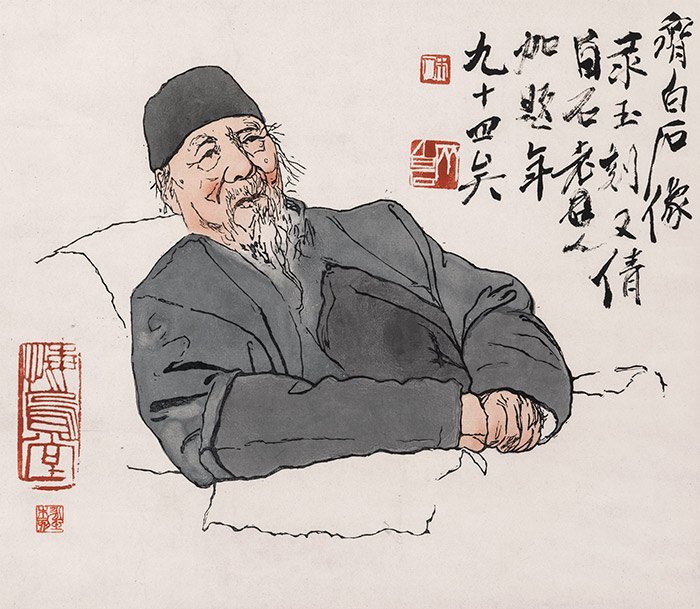 齊白石像
永玉刻又倩
白石老人
加題年
九十四矣
悔烏堂